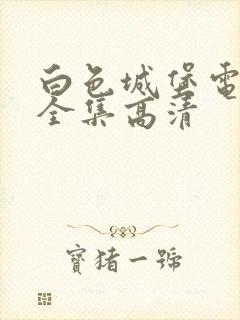 白色城堡電
全集高清
寶猪一號